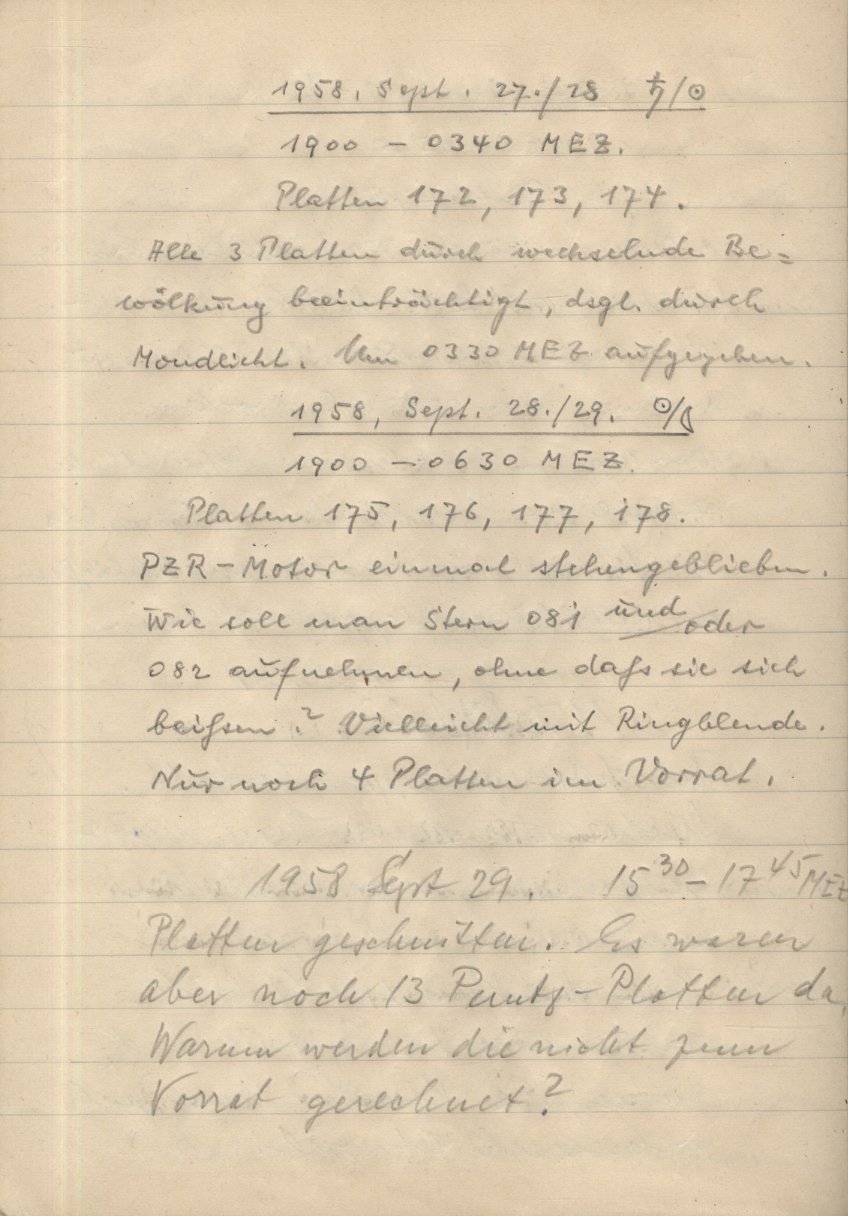 1958, Sept. 27./28 ♄/☉
1900 – 0340 MEZ.
Platten 172, 173, 174.
Alle 3 Platten durch wechselnde Be=
wölkung beeinträchtigt, dsgl. durch
Mondlicht. Um 0330 MEZ aufgegeben.
1958, Sept. 28./29. ☉/☾
1900 – 0630 MEZ.
Platten 175, 176, 177, 178.
PZR – Motor einmal stehengeblieben.
Wie soll man Stern 081 und/oder
082 aufnehmen, ohne daſs sie sich
beiſsen? Vielleicht mit Ringblende.
Nur noch 4 Platten im Vorrat.
1958 Sept 29. 15³⁰ – 17⁴⁵ MEZ
Platten geschnitten. Es waren
aber noch 13 Perutz-Platten da,
Warum werden die nicht zum
Vorrat gerechnet?